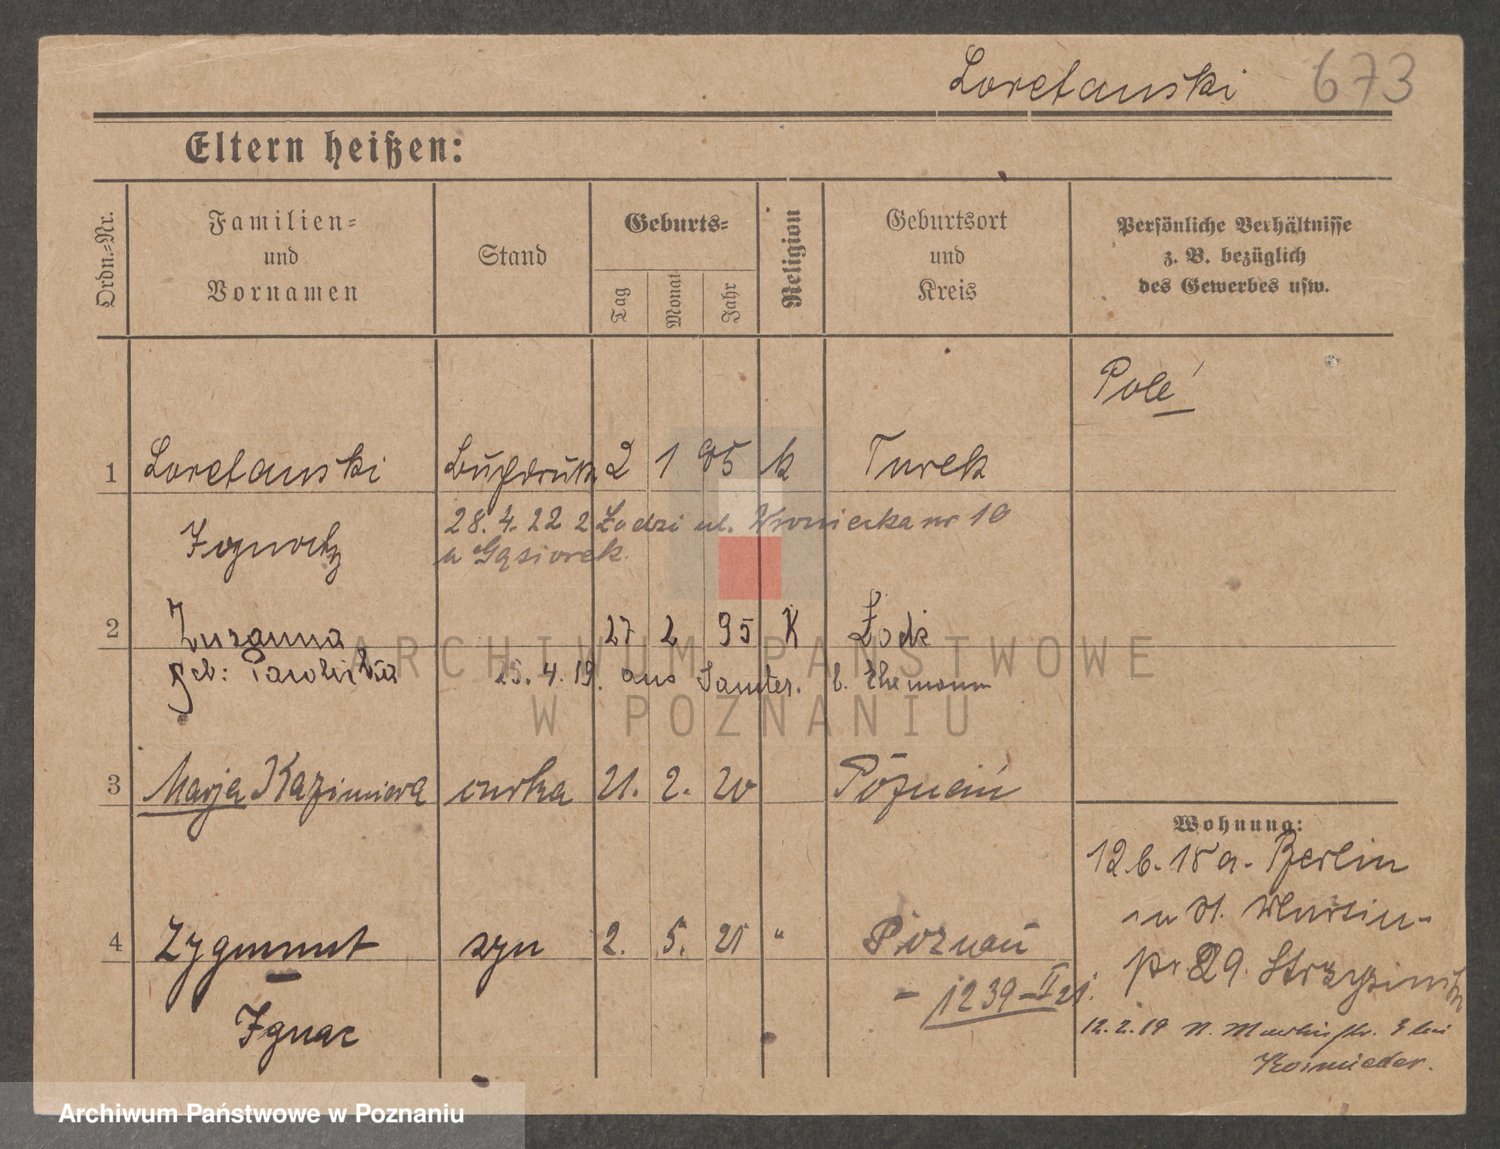 Loretanski 673
Eltern heißen:
Ordn.=Nr.
Familien=
und
Vornamen
Stand
Geburts=
Tag
Monat
Jahr
Religion
Geburtsort
und
Kreis
Persönliche Verhältnisse
z. B. bezüglich
des Gewerbes usw.
Pole
1 Loretanski Buchdruck 2 1 95 k Turek
28.4.22 z Łodzi ul. nr 10
u Gąsiorek
2 Zuzanna 27 2 95 K Łodz
geb: 25.4.19. aus Samter. b. Ehemann
3 Marja Kazimiera curka 21. 2. 20 Poznań
Wohnung:
12.6.18 a. Berlin
n. St. Martin-
29.
4 Zygmunt syn 2. 5. 21 " Poznań
- 1239-II 21.
Ignac
12.2.19 bei
ARCHIWUM PAŃSTWOWE
W POZNANIU
Archiwum Państwowe w Poznaniu